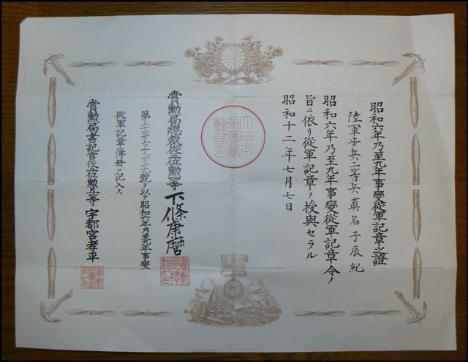 昭和六年乃至九年事變從軍記章之證
陸軍步兵二等兵真名子辰紀
昭和六年乃至九年事變從軍記章令ノ
旨ニ依リ從軍記章ヲ授與セラル
昭和十二年七月七日
賞勲局總裁從位勲等下條康麿
號ヲ以テ昭和六年乃至九年事變
從軍記章簿冊ニ記入ス
賞勲局書記官從位勲等宇都宮孝平